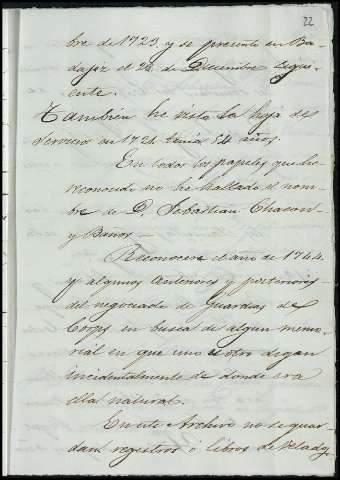 22
bre de 1723, y se presentó en Ba-
dajoz el 22 de Diciembre sigui-
ente.
También he visto la hoja de
servicios en 1724 tenía 54 años.
En todos los papeles que he
reconocido no he hallado el nom-
bre de D. Sebastian Chacon
y Baños.
Reconoceré el año de 1744
y algunos anteriores y posteriores
del negociado de Guardias de
Corps en busca de algun memo-
rial en que uno u otro digan
incidentalmente de donde era
ella natural.
En este Archivo no se guar-
dan registros ó libros de